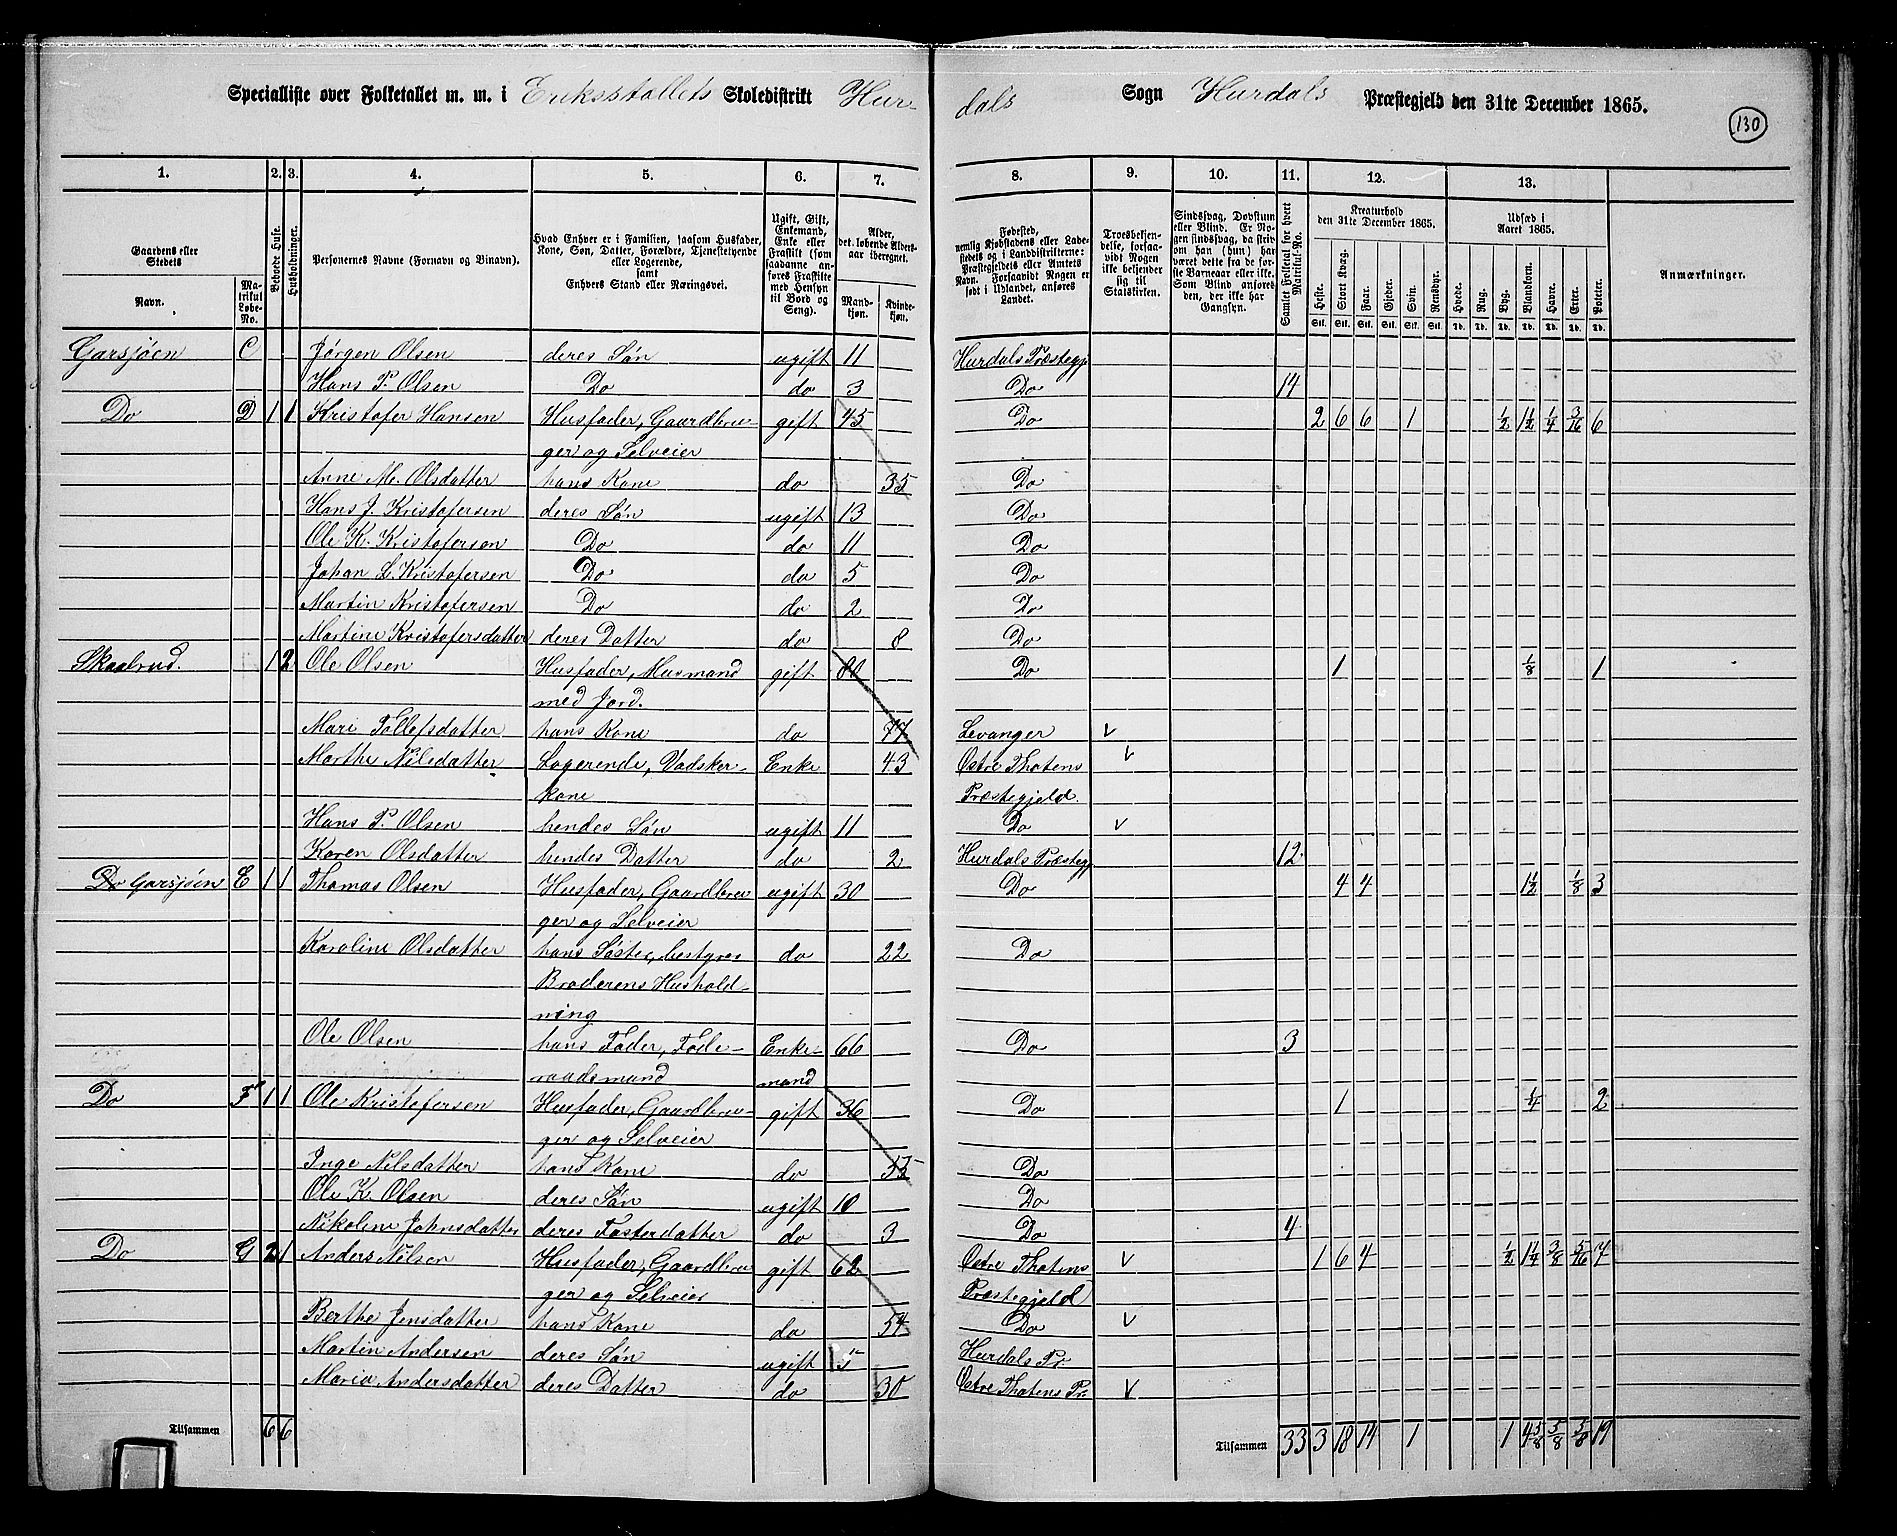 Specialliste over Folketallet m. m. i Eriksstallets Skoledistrikt Hurdals Sogn Hurdals Præstegjeld den 31te December 1865.
130
1. 2. 3. 4. 5. 6. 7. 8. 9. 10. 11. 12. 13.
Gaardens eller Stedets
Navn.
Matrikul Løbe-No.
Beboede Huse.
Husholdninger.
Personernes Navne (Fornavn og Binavn).
Hvad Enhver er i Familien, saasom Husfader, Kone, Søn, Datter, Forældre, Tjenestetyende eller Logerende, samt Enhvers Stand eller Næringsvei.
Ugift, Gift, Enkemand, Enke eller Fraskilt (som saadanne anføres Fraskilte med Hensyn til Bord og Seng).
Alder, det løbende Aldersaar iberegnet.
Mandkjøn. Kvindekjøn.
Fødested, nemlig Kjøbstadens eller Ladestedets og i Landdistrikterne: Præstegjeldets eller Amtets Navn. Forsaavidt Nogen er født i Udlandet, anføres Landet.
Troesbekjendelse, forsaavidt Nogen ikke bekjender sig til Statskirken.
Sindssvag, Døvstum eller Blind. Er Nogen sindssvag, da skriv om han (hun) har været dette fra de første Barneaar eller ikke. Som Blind anføres den, der ikke har Gangsyn.
Samlet Folketal for hvert Matrikul-No.
Kreaturhold den 31te December 1865.
Heste. Stort Kvæg. Faar. Gjeder. Svin. Rensdyr.
Udsæd i Aaret 1865.
Hvede. Rug. Byg. Blandkorn. Havre. Erter. Poteter.
Stk. Stk. Stk. Stk. Stk. Stk. Td. Td. Td. Td. Td. Td. Td.
Anmærkninger.
Garsjøen C Jørgen Olsen deres Søn ugift 11 Hurdals Præstegj
Hans P. Olsen Do do 3 Do 14
Do D 1 1 Kristofer Hansen Husfader, Gaardbru- gift 45 Do 2 6 6 1 1/2 1 1/2 1/4 3/16 6
ger og Selveier
Anne M. Olsdatter hans Kone do 35 Do
Hans J. Kristofersen deres Søn ugift 13 Do
Ole K. Kristofersen Do do 11 Do
Johan L. Kristofersen Do do 5 Do
Martin Kristofersen Do do 2 Do
Martine Kristofersdatter deres Datter do 8 Do
Skaalrud. 1 2 Ole Olsen Husfader, Husmand gift 80 Do 1 1/8 1
med Jord.
Mari Tollefsdatter hans Kone do 77 Levanger v
Marthe Nilsdatter Logerende, Vadsker- Enke 43 Østre Thotens v
kone Præstegjeld.
Hans P. Olsen hendes Søn ugift 11 Do v
Karen Olsdatter hendes Datter do 2 Hurdals Præstegj 12
Do Garsjøen E 1 1 Thomas Olsen Husfader, Gaardbru ugift 30 Do 4 4 1 1/2 1/8 3
ger og Selveier
Karoline Olsdatter hans Søster, bestyrer do 22 Do
Broderens Hushold-
ning
Ole Olsen hans Fader, Føde- Enke- 66 Do 3
raadsmand mand
Do F 1 1 Ole Kristofersen Husfader, Gaardbru- gift 36 Do 1 1/4 2
ger og Selveier
Inge Nilsdatter hans Kone do 55 Do
Ole K. Olsen deres Søn ugift 10 Do
Nikoline Johnsdatter deres Fosterdatter do 3 Do 4
Do G 2 1 Anders Nilsen Husfader, Gaardbru gift 62 Østre Thotens v 1 6 4 1/2 1 1/4 3/8 5/16 7
ger og Selveier Præstegjeld
Berthe Jensdatter hans Kone do 54 Do v
Martin Andersen deres Søn ugift 5 Hurdals Pr
Maria Andersdatter deres Datter do 30 Østre Thotens Pr. v
Tilsammen 6 6 Tilsammen 33 3 18 14 1 1 4 5/8 5/8 5/8 19